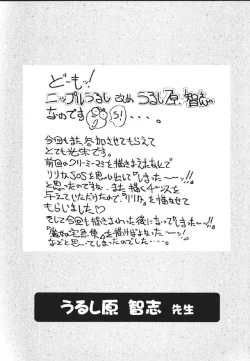 どーもッ!
ニップルうるし 改め うるし原 智志
なのです
今回もまた、参加させてもらえて
とても光栄です。
前回のクリーミーマミを描きおえたあとで
リリカSOSを思い出して「しまったー〜ッ!!」
と思ったのですね、また、描くチャンスを
与えていただけたので、「リリカ」を描かせて
もらいました♡
そして今回も描きおわった後になって「しまったー〜!!
「魔女の宅急便」を描けばよかったー〜ッ!
などと思ってしまったのでした・・・。
うるし原 智志 先生